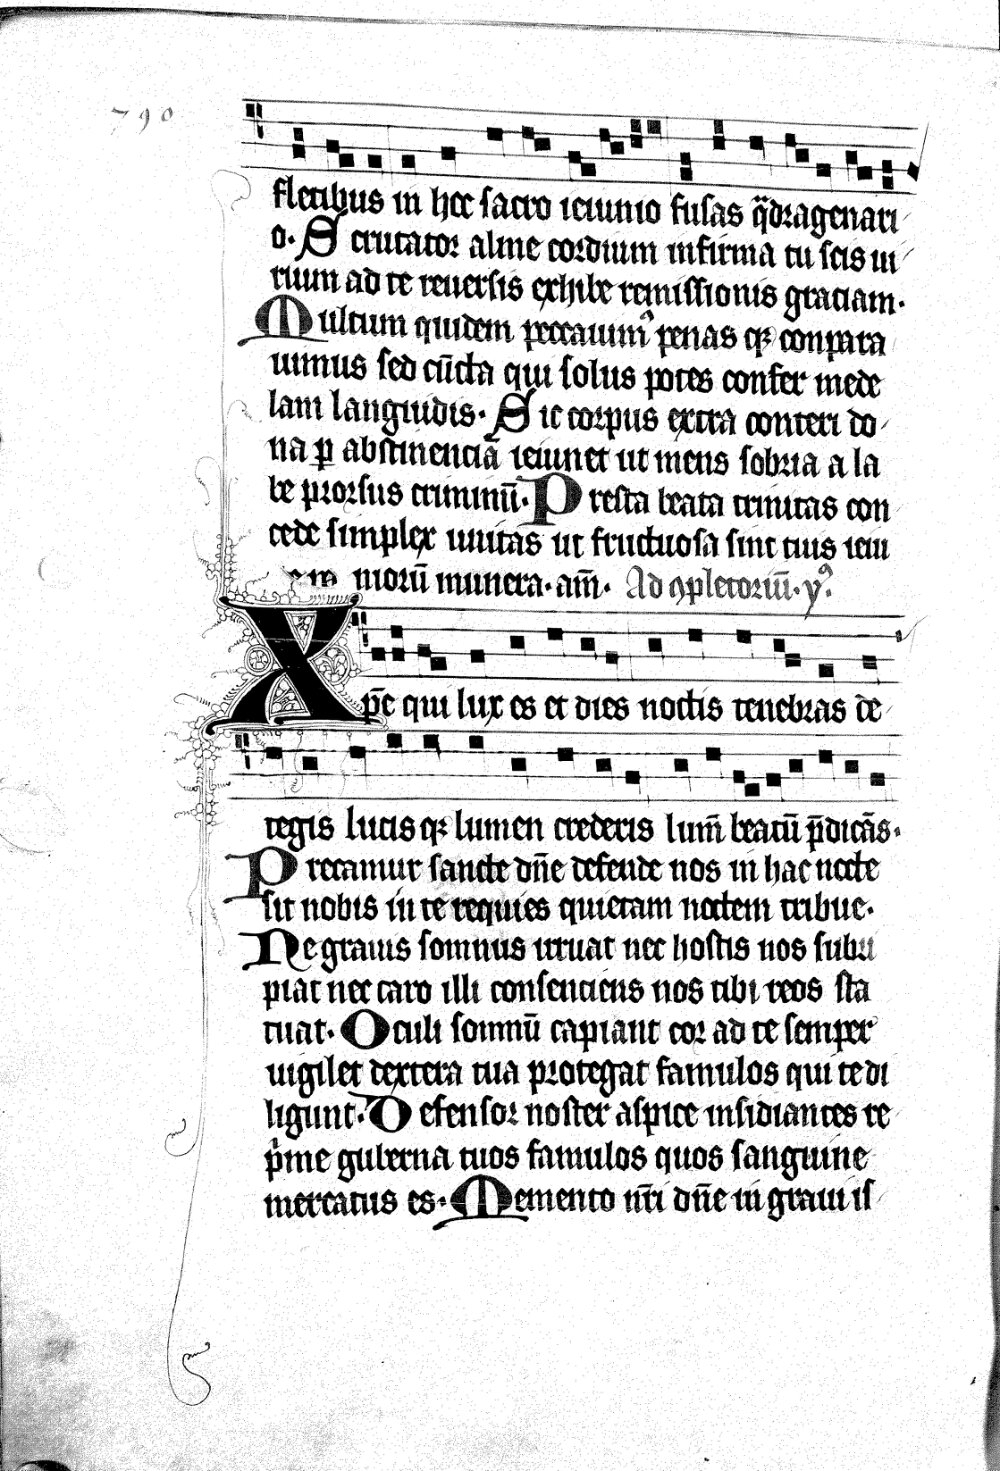 790
fletibus in hoc sacro ieiunio fusas q̄dragenari
o. Scrutator alme cordium infirma tu scis ui
rium ad te reuersis exhibe remissionis graciam.
Multum quidem peccauimꝰ penas qꝫ conpara
uimus sed cūcta qui solus potes confer mede
lam languidis. Sic corpus extra conteri do
na ꝑ abstinenciā ieiunet ut mens sobria a la
be prorsus criminū. Presta beata trinitas con
cede simplex unitas ut fructuosa sint tuis ieiu
niorū munera. am̄. Ad ꝯpletoriū. yꝰ.
Xp̄e qui lux es et dies noctis tenebras de
tegis lucis qꝫ lumen crederis lum̄ beatū p̄dicās.
Precamur sancte dn̄e defende nos in hac nocte
sit nobis in te requies quietam noctem tribue.
Ne grauis somnus irruat nec hostis nos subri
piat nec caro illi consenciens nos tibi reos sta
tuat. Oculi somnū capiant cor ad te semper
uigilet dextera tua protegat famulos qui te di
ligunt. Defensor noster aspice insidiantes re
p̄me guberna tuos famulos quos sanguine
mercatus es. Memento nr̄i dn̄e in graui is